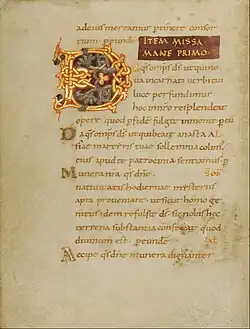 adeius mereamur ptinere consor
tium. p eunde
ITEM MISSA
MANE PRIMO.
Da qs omps ds ut qui no
ua incarnati uerbi tui
luce perfundimur
hoc innro resplendeat
opere. quod p fidē fulget in mente. p eu
Da qs omps ds ut qui beatae anastasiae
martyris tuae sollemnia colimus
eius apud te patrocinia sentiamus. p
Munera nra qs dne
natiuitatis hodiernae mysteriis
apta proueniant. ut sicut homo ge
nitus idem refulsit ds. sic nobis haec
terrena substantia conferat quod
diuinum est. p eunde
Accipe qs dne munera dignanter